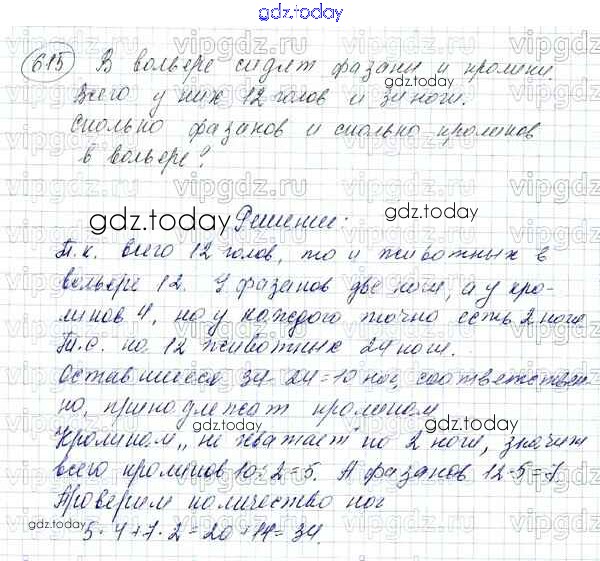 gdz.today
615 В вольере сидят фазаны и кролики.
Всего у них 12 голов и 34 ноги.
Сколько фазанов и сколько кроликов
в вольере?
Решение:
Т.к. всего 12 голов, то и животных в
вольере 12. У фазанов две ноги, а у кро-
ликов 4, но у каждого точно есть 2 ноги
Т.е. на 12 животных 24 ноги.
Оставшиеся 34-24=10 ног, соответствен-
но, принадлежат кроликам
Кроликам „не хватает" по 2 ноги, значит
всего кроликов 10:2=5. А фазанов 12-5=7.
Проверим количество ног
5·4+7·2=20+14=34.
gdz.today